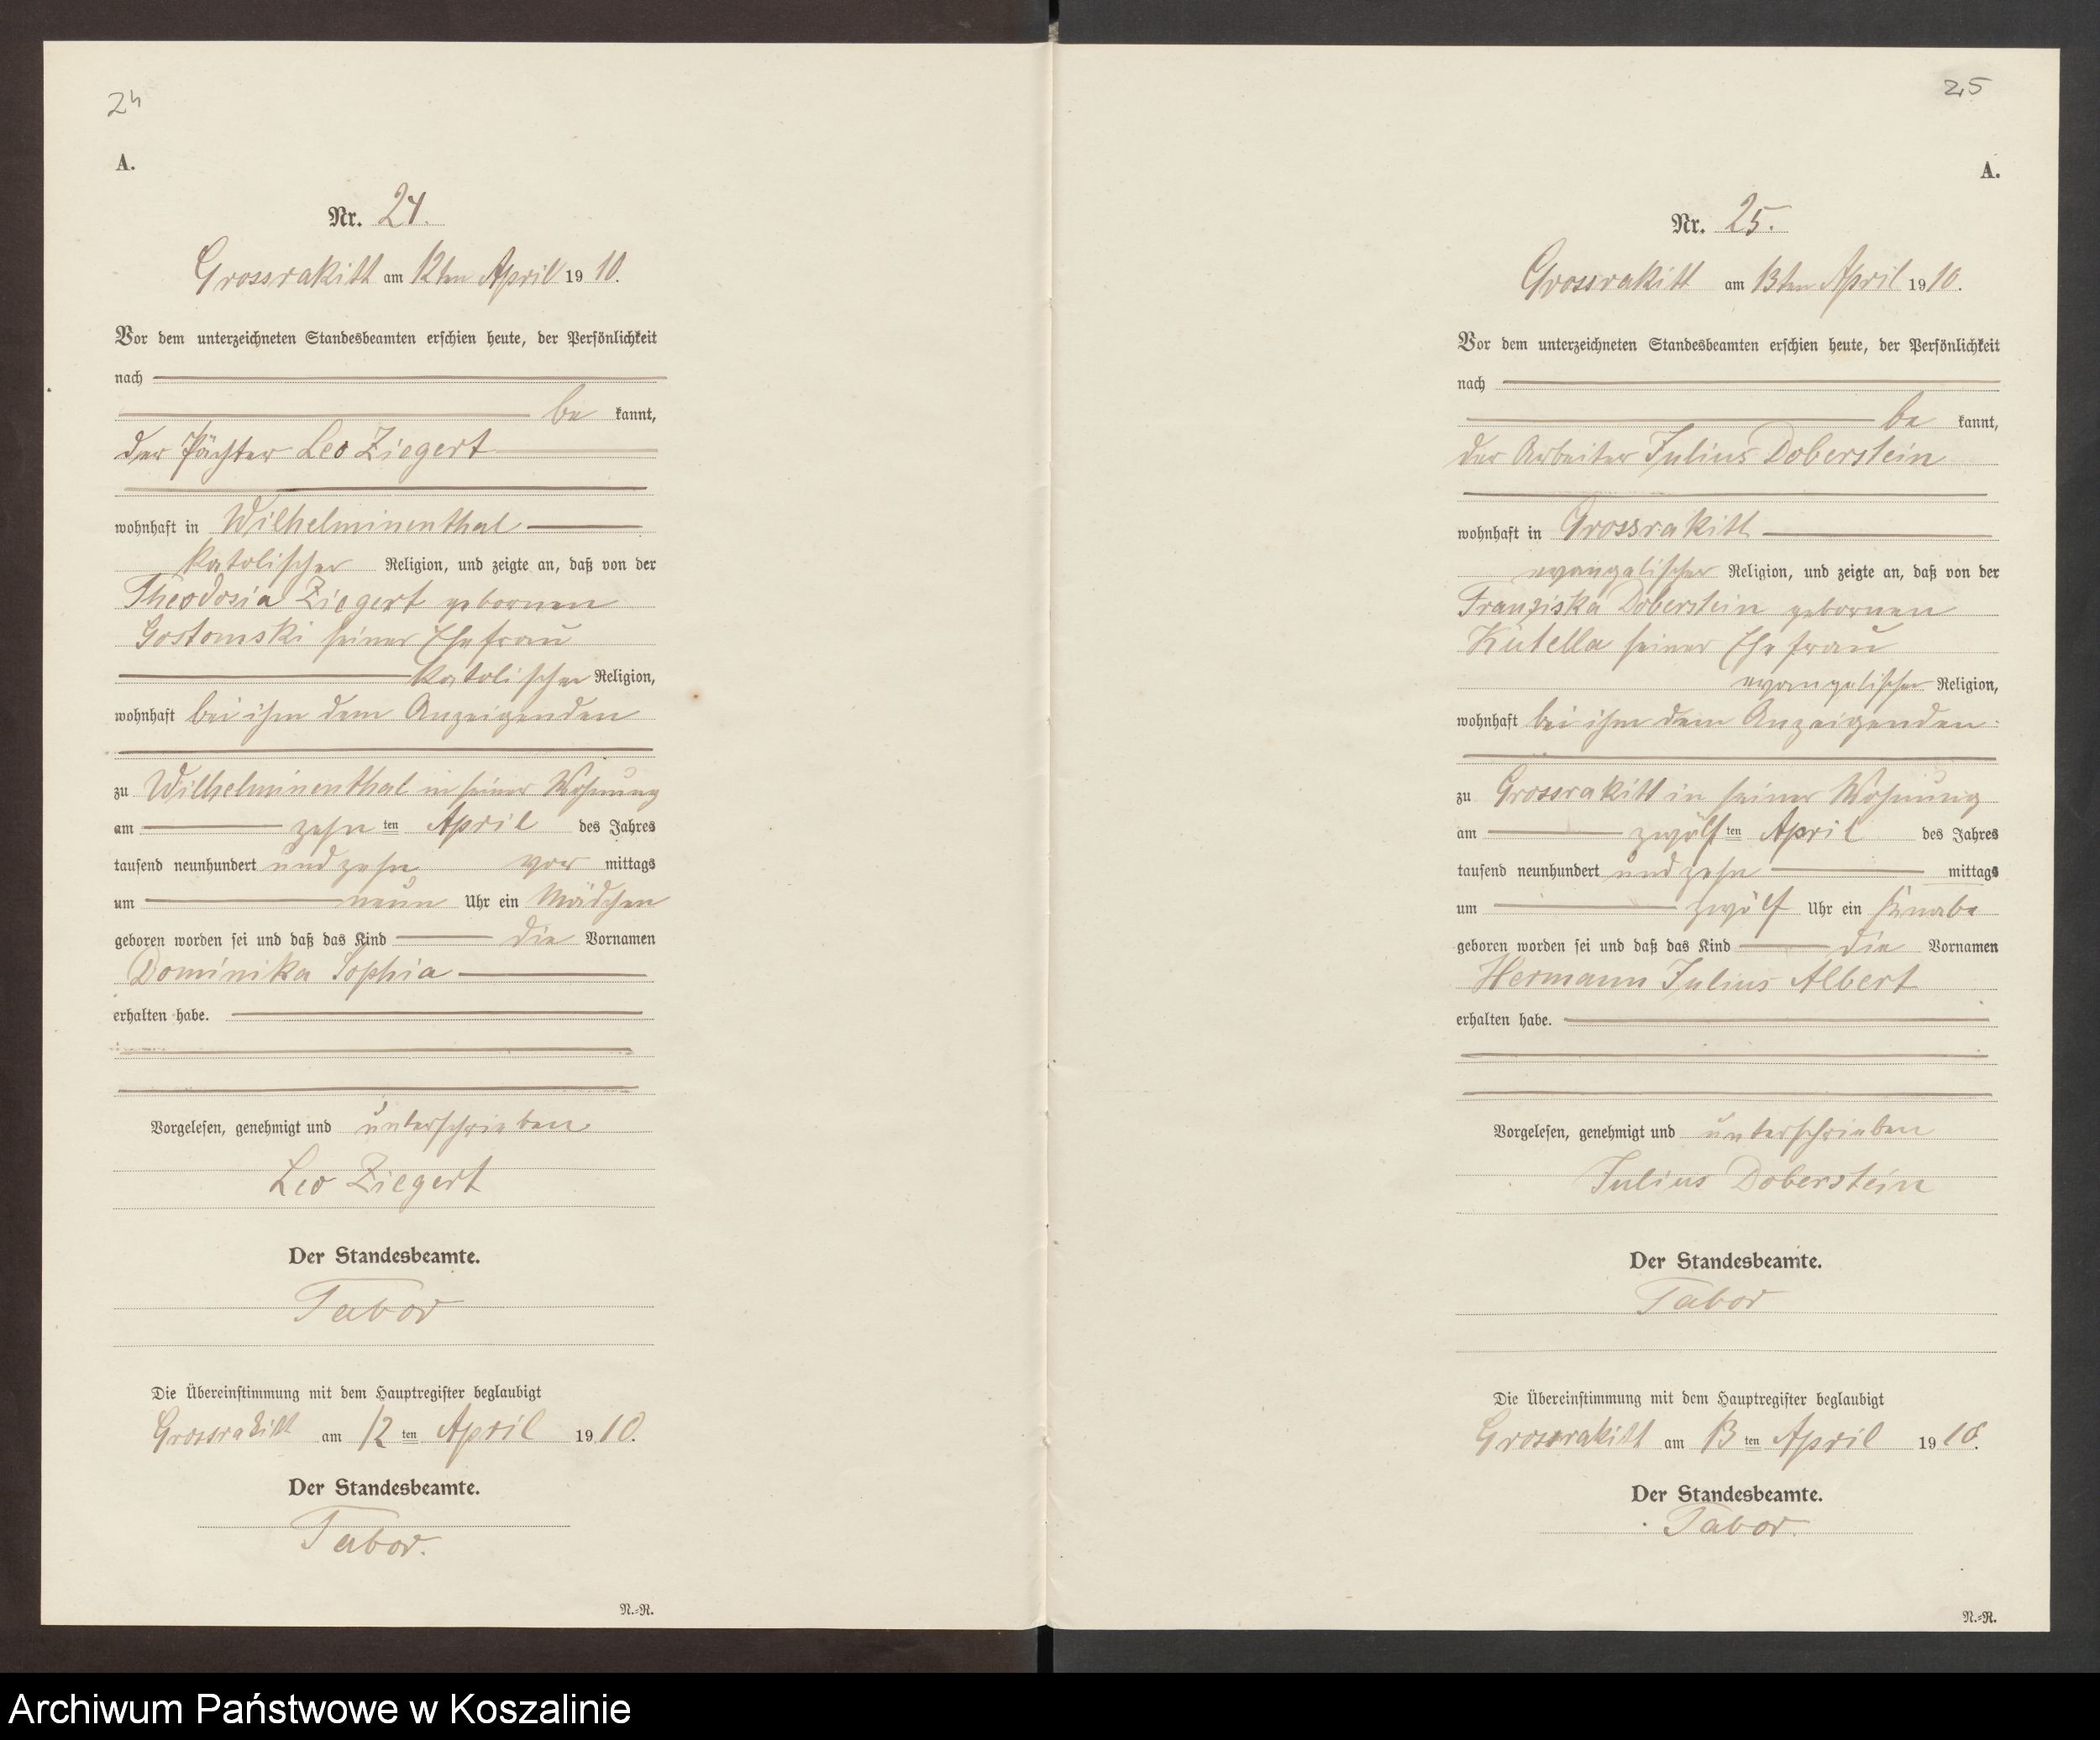 24
A.
Nr. 24.
Grossrakitt am 12ten April 1910.
Vor dem unterzeichneten Standesbeamten erschien heute, der Persönlichkeit
nach
be kannt,
der Pächter Leo Ziegert
wohnhaft in Wilhelminenthal
katolischer Religion, und zeigte an, daß von der
Theodosia Ziegert gebornen
Gostomski seiner Ehefrau
katolischer Religion,
wohnhaft bei ihm dem Anzeigenden
zu Wilhelminenthal in seiner Wohnung
am zehn ten April des Jahres
tausend neunhundert und zehn vor mittags
um neun Uhr ein Mädchen
geboren worden sei und daß das Kind die Vornamen
Dominika Sophia
erhalten habe.
Vorgelesen, genehmigt und unterschrieben
Leo Ziegert
Der Standesbeamte.
Tabor
Die Übereinstimmung mit dem Hauptregister beglaubigt
Grossrakitt am 12 ten April 1910.
Der Standesbeamte.
Tabor.
N.=R.
25
A.
Nr. 25.
Grossrakitt am 13ten April 1910.
Vor dem unterzeichneten Standesbeamten erschien heute, der Persönlichkeit
nach
be kannt,
der Arbeiter Julius Doberstein
wohnhaft in Grossrakitt
evangelischer Religion, und zeigte an, daß von der
Franziska Doberstein gebornen
Kutella seiner Ehefrau
evangelischer Religion,
wohnhaft bei ihm dem Anzeigenden
zu Grossrakitt in seiner Wohnung
am zwölf ten April des Jahres
tausend neunhundert und zehn mittags
um zwölf Uhr ein Knabe
geboren worden sei und daß das Kind die Vornamen
Hermann Julius Albert
erhalten habe.
Vorgelesen, genehmigt und unterschrieben
Julius Doberstein
Der Standesbeamte.
Tabor
Die Übereinstimmung mit dem Hauptregister beglaubigt
Grossrakitt am 13 ten April 1910.
Der Standesbeamte.
Tabor.
N.=R.
Archiwum Państwowe w Koszalinie